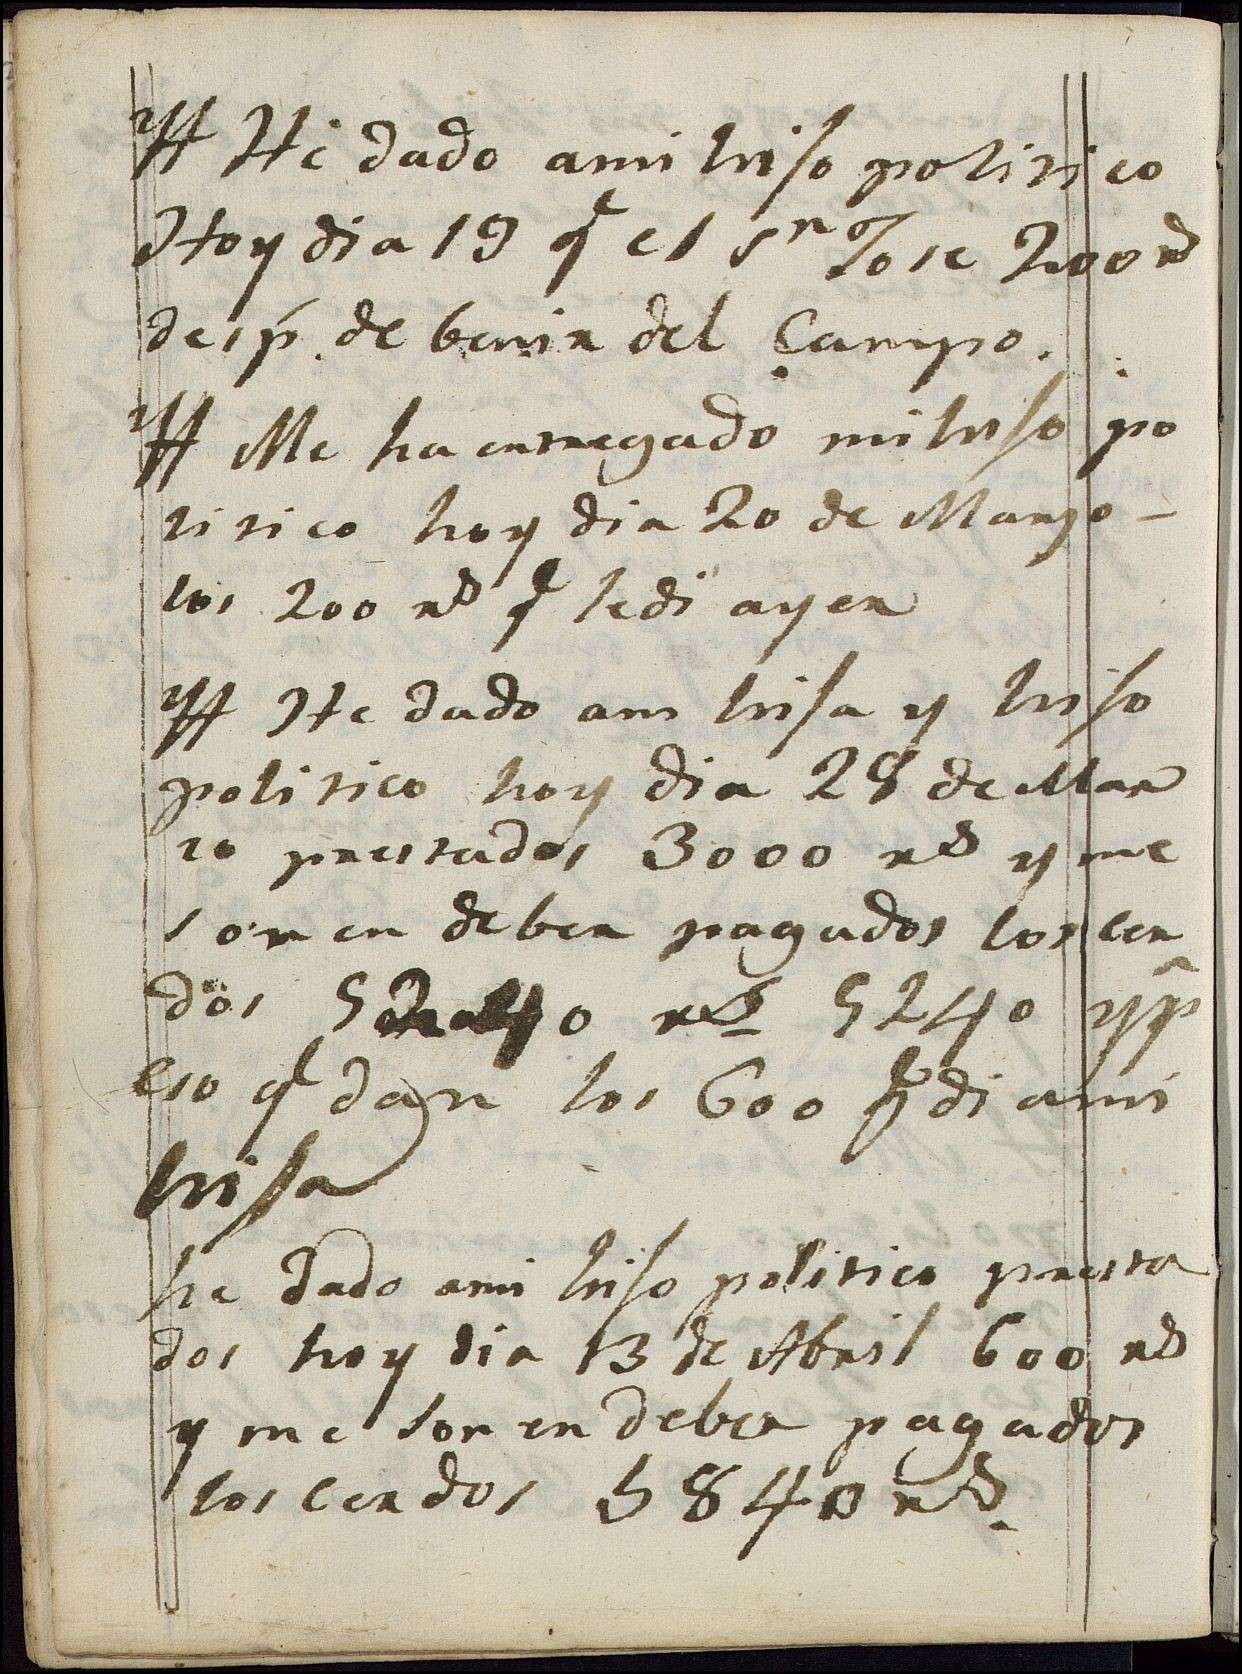 He dado ami hijo politico
Hoy dia 19 q el Sn Jose 200 rs
desp. de benir del Campo.
Me ha entregado mi hijo po
litico hoy dia 20 de Marzo -
los 200 rs q le di ayer
He dado ami hija y hijo
politico hoy dia 28 de Mar
zo prestados 3000 rs y me
son en deber pagados los cer
dos 5240 rs 5240 y p
eso q dan los 600 q di a mi
hija
he dado ami hijo politico presta
dos hoy dia 13 de Abril 600 rs
y me son en deber pagados
los cerdos 5840 rs.